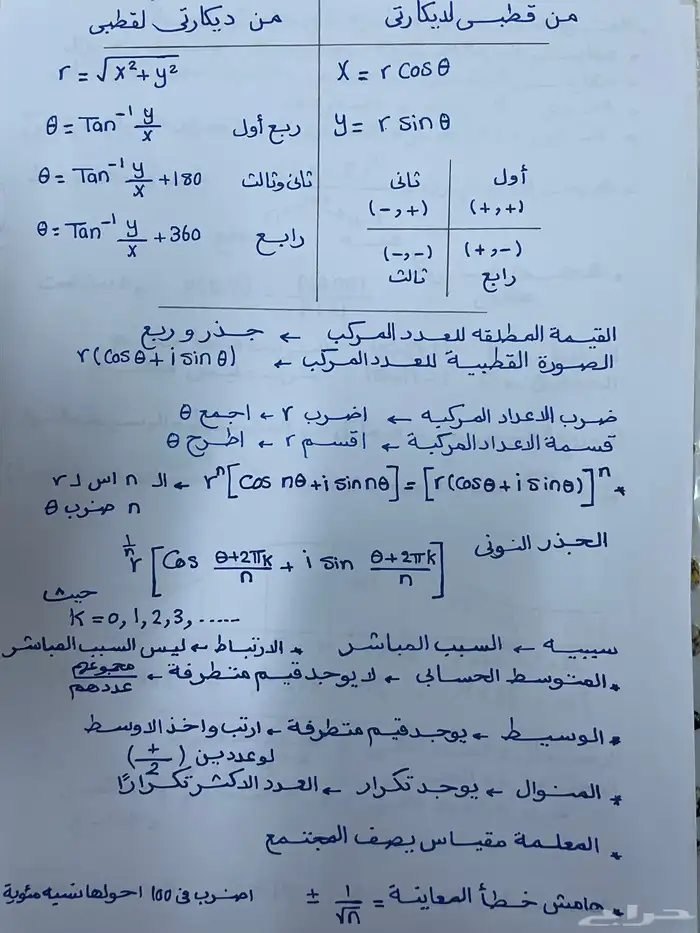 من قطبى لديكارتى
من ديكارتى لقطبى
x = r cos θ
r = √x²+y²
y = r sin θ
θ = Tan⁻¹ y/x ربع أول
θ = Tan⁻¹ y/x +180 ثانى وثالث
θ = Tan⁻¹ y/x +360 رابع
أول ثانى
(+,+) (-,+)
(+,-) (-,-)
رابع ثالث
القيمة المطلقه للعدد المركب ← جذر و ربع
الصورة القطبية للعدد المركب ← r(cos θ + i sin θ)
ضرب الاعداد المركبه ← اضرب r ← اجمع θ
قسمة الاعداد المركبة ← اقسم r ← اطرح θ
* [r(cos θ + i sin θ)]ⁿ = rⁿ[cos nθ + i sin nθ] ← الـ n اس لـ r
n ضرب θ
الجذر النونى
r^(1/n) [cos (θ+2πk)/n + i sin (θ+2πk)/n]
حيث
k = 0, 1, 2, 3, .....
سببيه ← السبب المباشر * الارتباط ← ليس السبب المباشر
* المتوسط الحسابى ← لا يوجد قيم متطرفة ← مجموعهم/عددهم
* الوسيط ← يوجد قيم متطرفة ← ارتب واخذ الاوسط
لو عددين (+/2)
* المنوال ← يوجد تكرار ← العدد الاكثر تكرارًا
* المعلمة مقياس يصف المجتمع
* هامش خطأ المعاينة = ± 1/√n اضرب فى 100 احولها نسبه مئوية
حراج